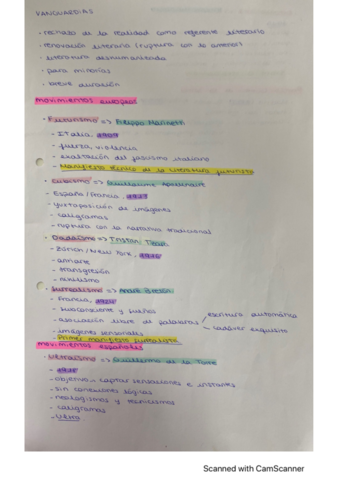 VANGUARDIAS
· rechazo de la realidad como referente literario
· renovación literaria (ruptura con lo anterior)
· literatura deshumanizada
· para minorías
· breve duración
movimientos europeos
· Futurismo => Filippo Marinetti
- Italia, 1909
- fuerza, violencia
- exaltación del fascismo italiano
- Manifiesto técnico de la literatura futurista
· Cubismo => Guillaume Apollinaire
- España/Francia, 1917
- yuxtaposición de imágenes
- caligramas
- ruptura con la narrativa tradicional
· Dadaísmo => Tristan Tzara
- Zúrich/New York, 1916
- antiarte
- transgresión
- nihilismo
· Surrealismo => André Breton
- Francia, 1924
- subconsciente y sueños
- asociación libre de palabras escritura automática
cadáver exquisito
- imágenes sensoriales
- Primer manifiesto surrealista
movimientos españoles
· Ultraísmo => Guillermo de la Torre
- 1918
- objetivo - captar sensaciones e instantes
- sin conexiones lógicas
- neologismos y tecnicismos
- caligramas
- Ultra
Scanned with CamScanner